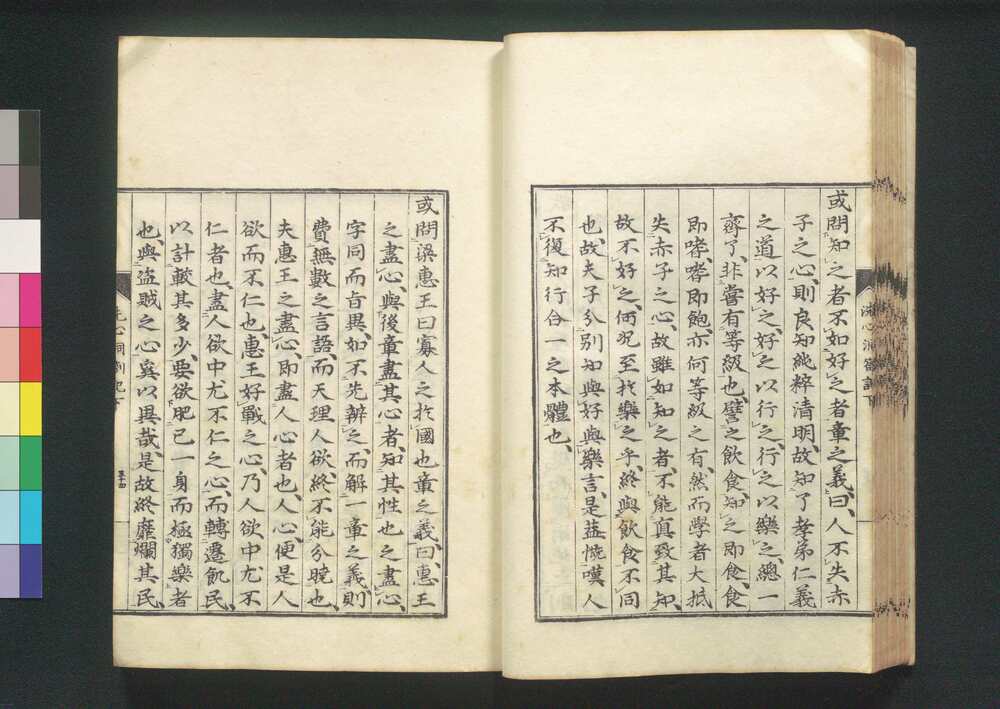 或問知之者不如好之者章之義曰、人不失赤
子之心、則良知純粹清明、故知了孝弟仁義
之道以好之、好之以行之、行之以樂之、總一
齊了、非嘗有等級也、譬之飲食、知之即食、食
即嗜、嗜即飽、亦何等級之有、然而學者大抵
失赤子之心、故雖如知之者、不能真致其知、
故不好之、何況至於樂之乎、終與飲食不同
也、故夫子分別知與好與樂言、是蓋慨嘆人
不復知行合一之本體也、
洗心洞劄記下
或問梁惠王曰寡人之於國也章之義、曰、惠王
之盡心、與後章盡其心者、知其性也之盡心、
字同而旨異、如不先辨之、而解一章之義、則
費無數之言語、而天理人欲終不能分曉也、
夫惠王之盡心、即盡人心者也、人心便是人
欲而不仁也、惠王好戰之心、乃人欲中尤不
仁者也、盡人欲中尤不仁之心、而轉遷飢民、
以計較其多少、要欲肥己一身而極獨樂者
也、與盜賊之心奚以異哉、是故終靡爛其民、
洗心洞劄記下
五十四